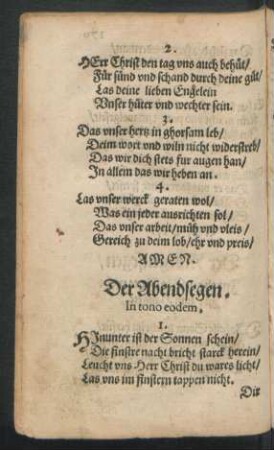 2.
HErr Christ den tag vns auch behüt/
Für sünd vnd schand durch deine güt/
Las deine lieben Engelein
Vnser hüter vnd wechter sein.
3.
Das vnser hertz in ghorsam leb/
Deim wort vnd wiln nicht widerstreb/
Das wir dich stets fur augen han/
In allem das wir heben an.
4.
Las vnser werck geraten wol/
Was ein jeder ausrichten sol/
Das vnser arbeit/müh vnd vleis/
Gereich zu deim lob/ehr vnd preis/
AMEN.
Der Abendsegen.
In tono eodem.
1.
HInunter ist der Sonnen schein/
Die finstre nacht bricht starck herein/
Leucht vns Herr Christ du wares licht/
Las vns im finstern tappen nicht.
Dir